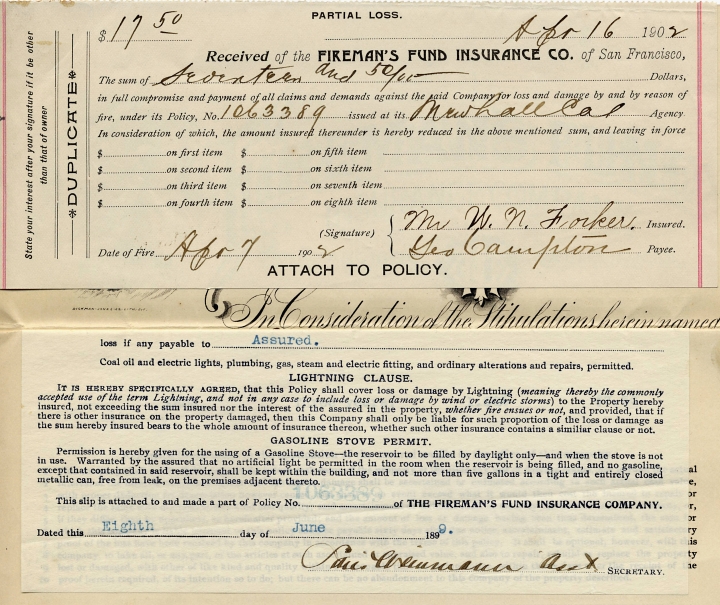 PARTIAL LOSS.
$ 17 50 Apr 16 1902
Received of the FIREMAN'S FUND INSURANCE CO. of San Francisco,
The sum of Seventeen and 50/100 Dollars,
in full compromise and payment of all claims and demands against the said Company for loss and damage by and by reason of
fire, under its Policy, No. 1063389 issued at its Newhall Cal Agency
In consideration of which, the amount insured thereunder is hereby reduced in the above mentioned sum, and leaving in force
$ on first item $ on fifth item
$ on second item $ on sixth item
$ on third item $ on seventh item
$ on fourth item $ on eighth item
(Signature) Mr W. N. Forker. Insured.
Date of Fire Apr 7 1902 Geo Campton Payee.
ATTACH TO POLICY.
State your interest after your signature if it be other
than that of owner
DUPLICATE
In Consideration of the Stipulations herein named
loss if any payable to Assured.
Coal oil and electric lights, plumbing, gas, steam and electric fitting, and ordinary alterations and repairs, permitted.
LIGHTNING CLAUSE.
IT IS HEREBY SPECIFICALLY AGREED, that this Policy shall cover loss or damage by Lightning (meaning thereby the commonly
accepted use of the term Lightning, and not in any case to include loss or damage by wind or electric storms) to the Property hereby
insured, not exceeding the sum insured nor the interest of the assured in the property, whether fire ensues or not, and provided, that if
there is other insurance on the property damaged, then this Company shall only be liable for such proportion of the loss or damage as
the sum hereby insured bears to the whole amount of insurance thereon, whether such other insurance contains a similiar clause or not.
GASOLINE STOVE PERMIT.
Permission is hereby given for the using of a Gasoline Stove—the reservoir to be filled by daylight only—and when the stove is not
in use. Warranted by the assured that no artificial light be permitted in the room when the reservoir is being filled, and no gasoline,
except that contained in said reservoir, shall be kept within the building, and not more than five gallons in a tight and entirely closed
metallic can, free from leak, on the premises adjacent thereto.
This slip is attached to and made a part of Policy No. 1063389 of THE FIREMAN'S FUND INSURANCE COMPANY.
Dated this Eighth day of June 1899.
SECRETARY.